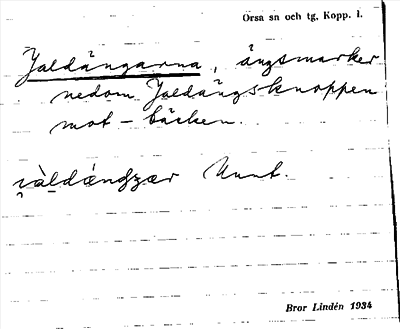 Orsa sn och tg, Kopp. l.
Jaldängarna, ängsmarker
nedom Jaldängsknoppen
mot – bäcken.
Bror Lindén 1934